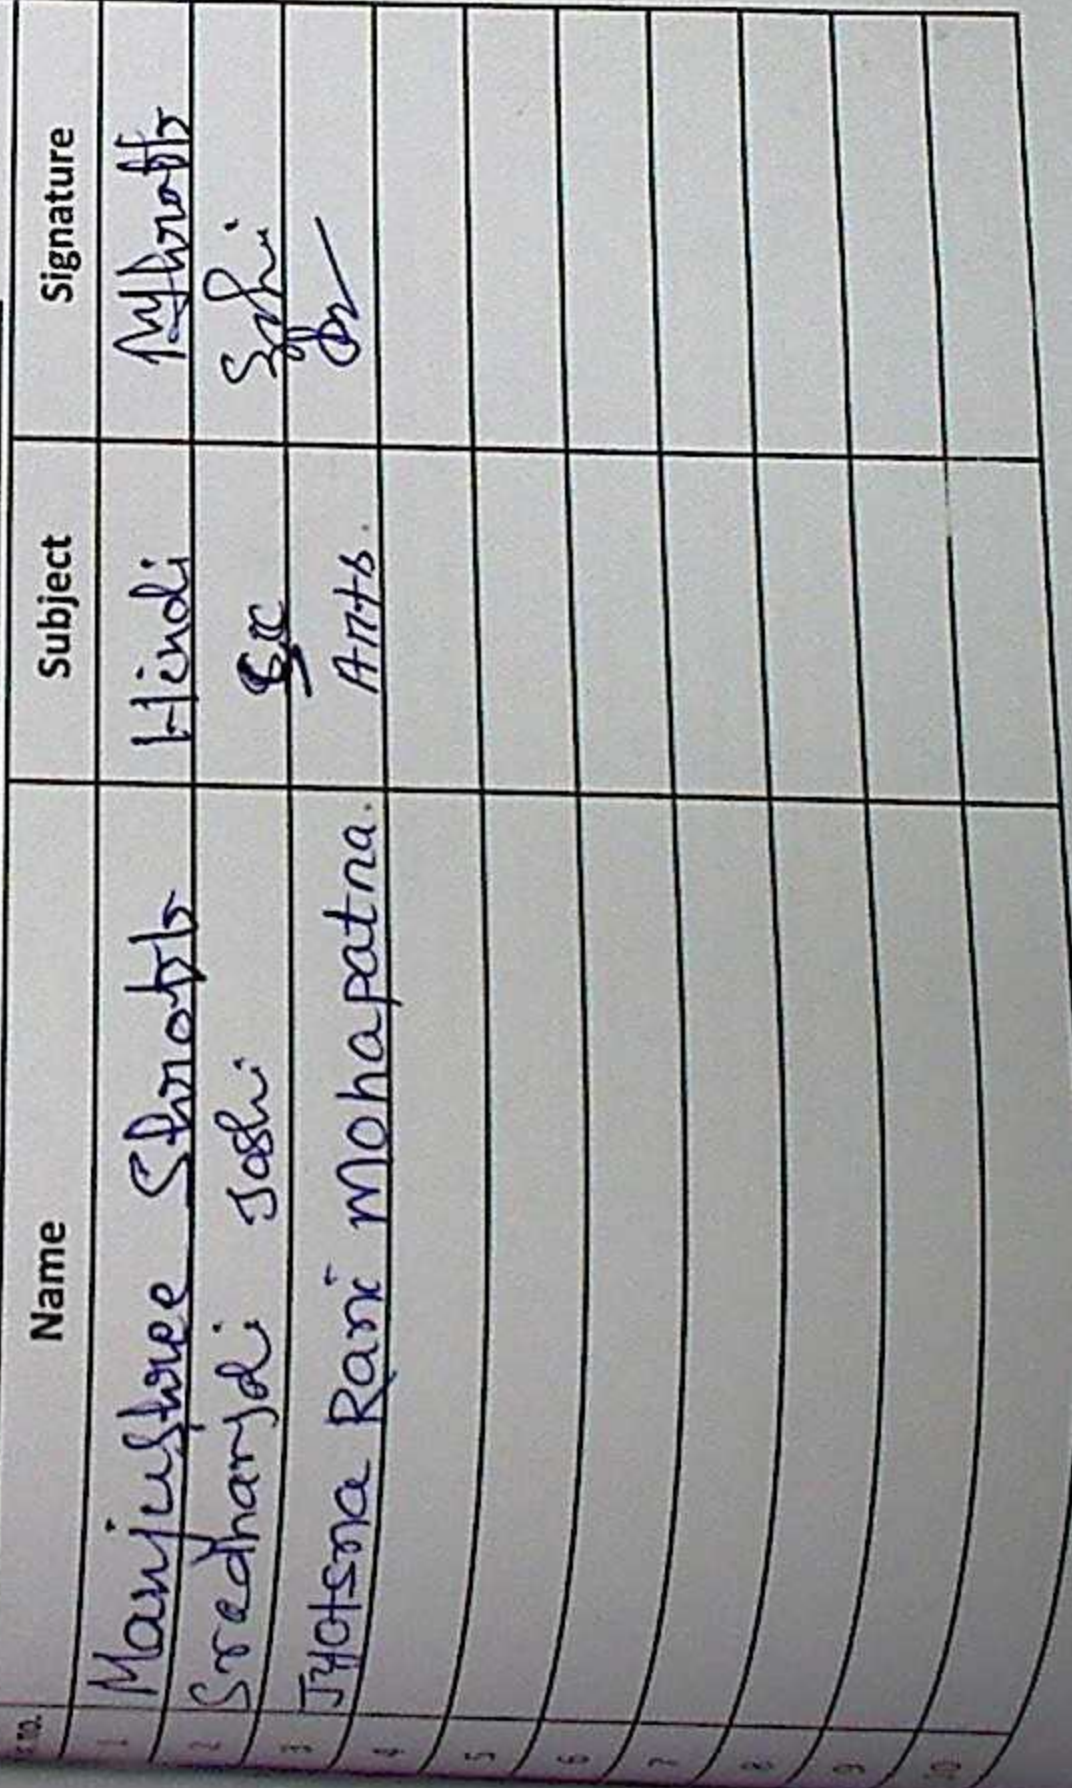 S.no. Name Subject Signature
1 Manjushree Shrotr Hindi
2 Sreedharydi Joshi
3 Jyotsna Rani Mohapatra. Arts.
4
5
6
7
8
9
10